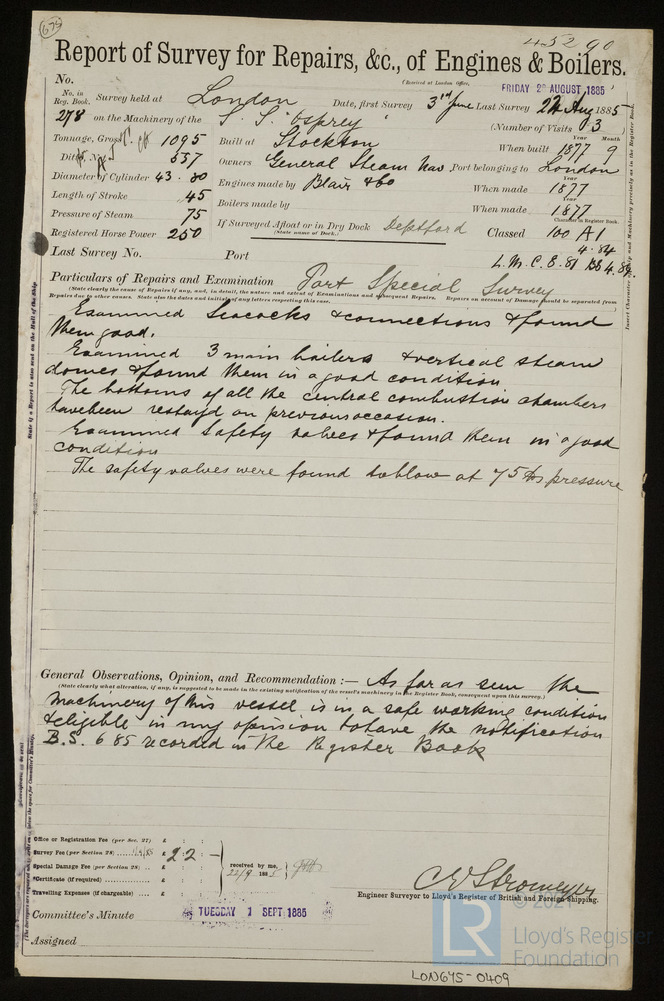 675
45290
Report of Survey for Repairs, &c., of Engines & Boilers.
(Received at London Office, FRIDAY 28 AUGUST 1885)
No.
No. in Reg. Book. Survey held at London Date, first Survey 3rd June Last Survey Aug 1885
278 on the Machinery of the S.S. "Osprey" (Number of Visits 3)
Tonnage, Gross 1095 Built at Stockton When built 1877 9 Year Month
Ditto, Net 557 Owners General Steam Nav Port belonging to London
Diameter of Cylinder 43 . 80 Engines made by Blair & Co When made 1877 Year
Length of Stroke 45 Boilers made by When made 1877 Year
Pressure of Steam 75 If Surveyed Afloat or in Dry Dock Deptford Classed 100 A1 Character in Register Book.
(State name of Dock.)
Registered Horse Power 250
4.84
Last Survey No. Port L.M.C. 8.81 BS 4.84
Particulars of Repairs and Examination Part Special Survey
(State clearly the cause of Repairs if any, and, in detail, the nature and extent of Examinations and subsequent Repairs. Repairs on account of Damage should be separated from
Repairs due to other causes. State also the dates and initials of any letters respecting this case.)
Examined Seacocks & connections & found
them good.
Examined 3 main boilers & vertical steam
domes & found them in a good condition
The bottoms of all the central combustion chambers
have been restay'd on previous occasion.
Examined Safety valves & found them in a good
condition
The safety valves were found to blow at 75 lbs pressure
General Observations, Opinion, and Recommendation :— As far as seen the
(State clearly what alteration, if any, is suggested to be made in the existing notification of the vessel's machinery in the Register Book, consequent upon this survey.)
machinery of this vessel is in a safe working condition
& eligible in my opinion to have the notification
B.S. 6 85 recorded in the Register Book
Office or Registration Fee (per Sec. 27) £ : :
Survey Fee (per Section 28) £ 2 : 2 :
Special Damage Fee (per Section 28) £ : : received by me,
*Certificate (if required) £ : : 22/9 1885
Travelling Expenses (if chargeable) £ : :
C E Stromeyer
Engineer Surveyor to Lloyd's Register of British and Foreign Shipping.
Committee's Minute TUESDAY 1 SEPT 1885
Assigned
State if a Report is also sent on the Hull of the Ship.
Insert Character of Ship and Machinery precisely as in the Register Book.
© 2021
LR
Lloyd's Register
Foundation
LON675-0409